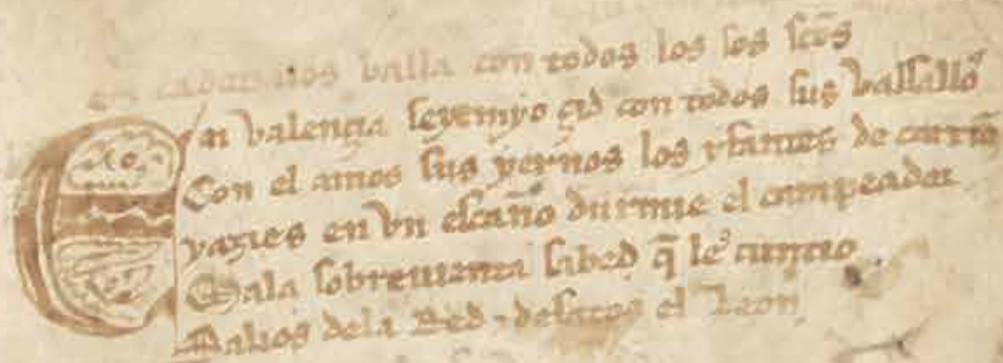 el criador uos valla con todos los sos scõs
En valençia seye myo çid con todos sus vassallos
Con el amos sus yernos los yfantes de carrion
yazies en vn escaño durmie el campeador
Mala sobreuienta sabed q̄ les cuntio
Salios dela Red ⁊ desatos el Leon